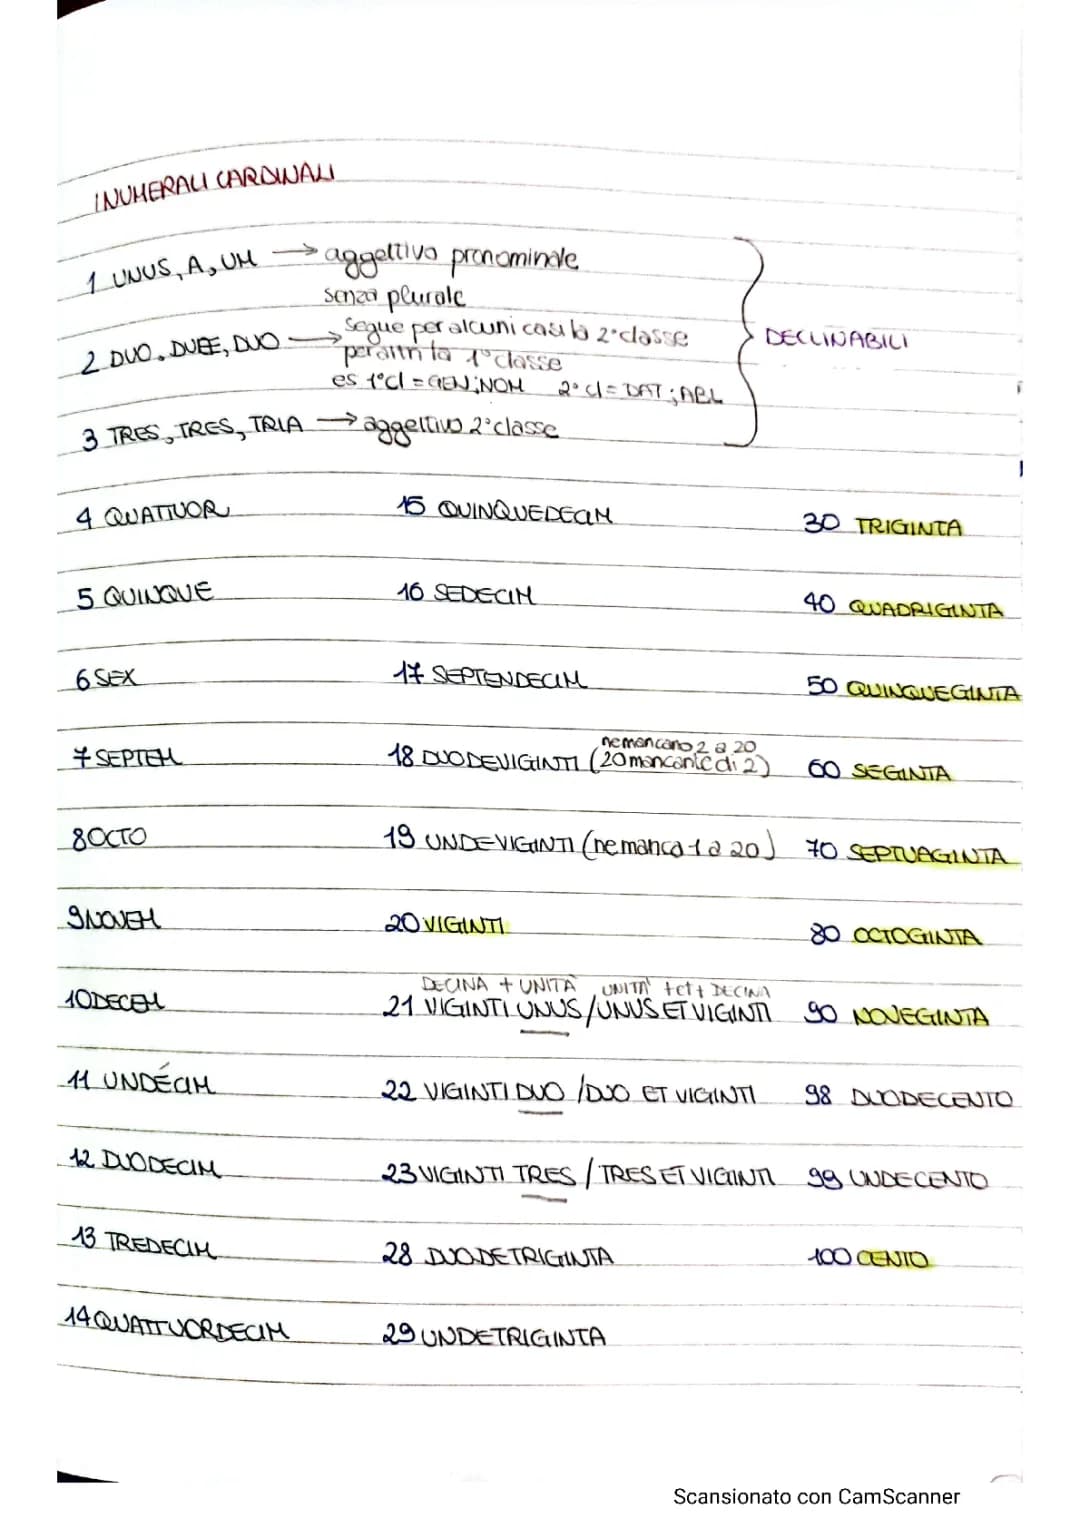 I NUMERALI CARDINALI
1 UNUS, A, UM → aggettivo pronominale
senza plurale
2 DUO, DUAE, DUO → segue per alcuni casi la 2° classe
per altri la 1° classe
es 1°cl = GEN; NOM 2° cl = DAT; ABL
3 TRES, TRES, TRIA → aggettivo 2° classe
DECLINABILI
4 QUATTUOR
5 QUINQUE
6 SEX
7 SEPTEM
8 OCTO
9 NOVEM
10 DECEM
11 UNDÉCIM
12 DUODECIM
13 TREDECIM
14 QUATTUORDECIM
15 QUINQUEDECIM
16 SEDECIM
17 SEPTENDECIM
ne mancano 2 a 20
18 DUODEVIGINTI (20 mancante di 2)
19 UNDEVIGINTI (ne manca 1 a 20)
20 VIGINTI
DECINA + UNITÀ UNITÀ + et + DECINA
21 VIGINTI UNUS / UNUS ET VIGINTI
22 VIGINTI DUO / DUO ET VIGINTI
23 VIGINTI TRES / TRES ET VIGINTI
28 DUODETRIGINTA
29 UNDETRIGINTA
30 TRIGINTA
40 QUADRIGINTA
50 QUINQUEGINTA
60 SEGINTA
70 SEPTUAGINTA
80 OCTOGINTA
90 NOVEGINTA
98 DUODECENTO
99 UNDECENTO
100 CENTO
Scansionato con CamScanner